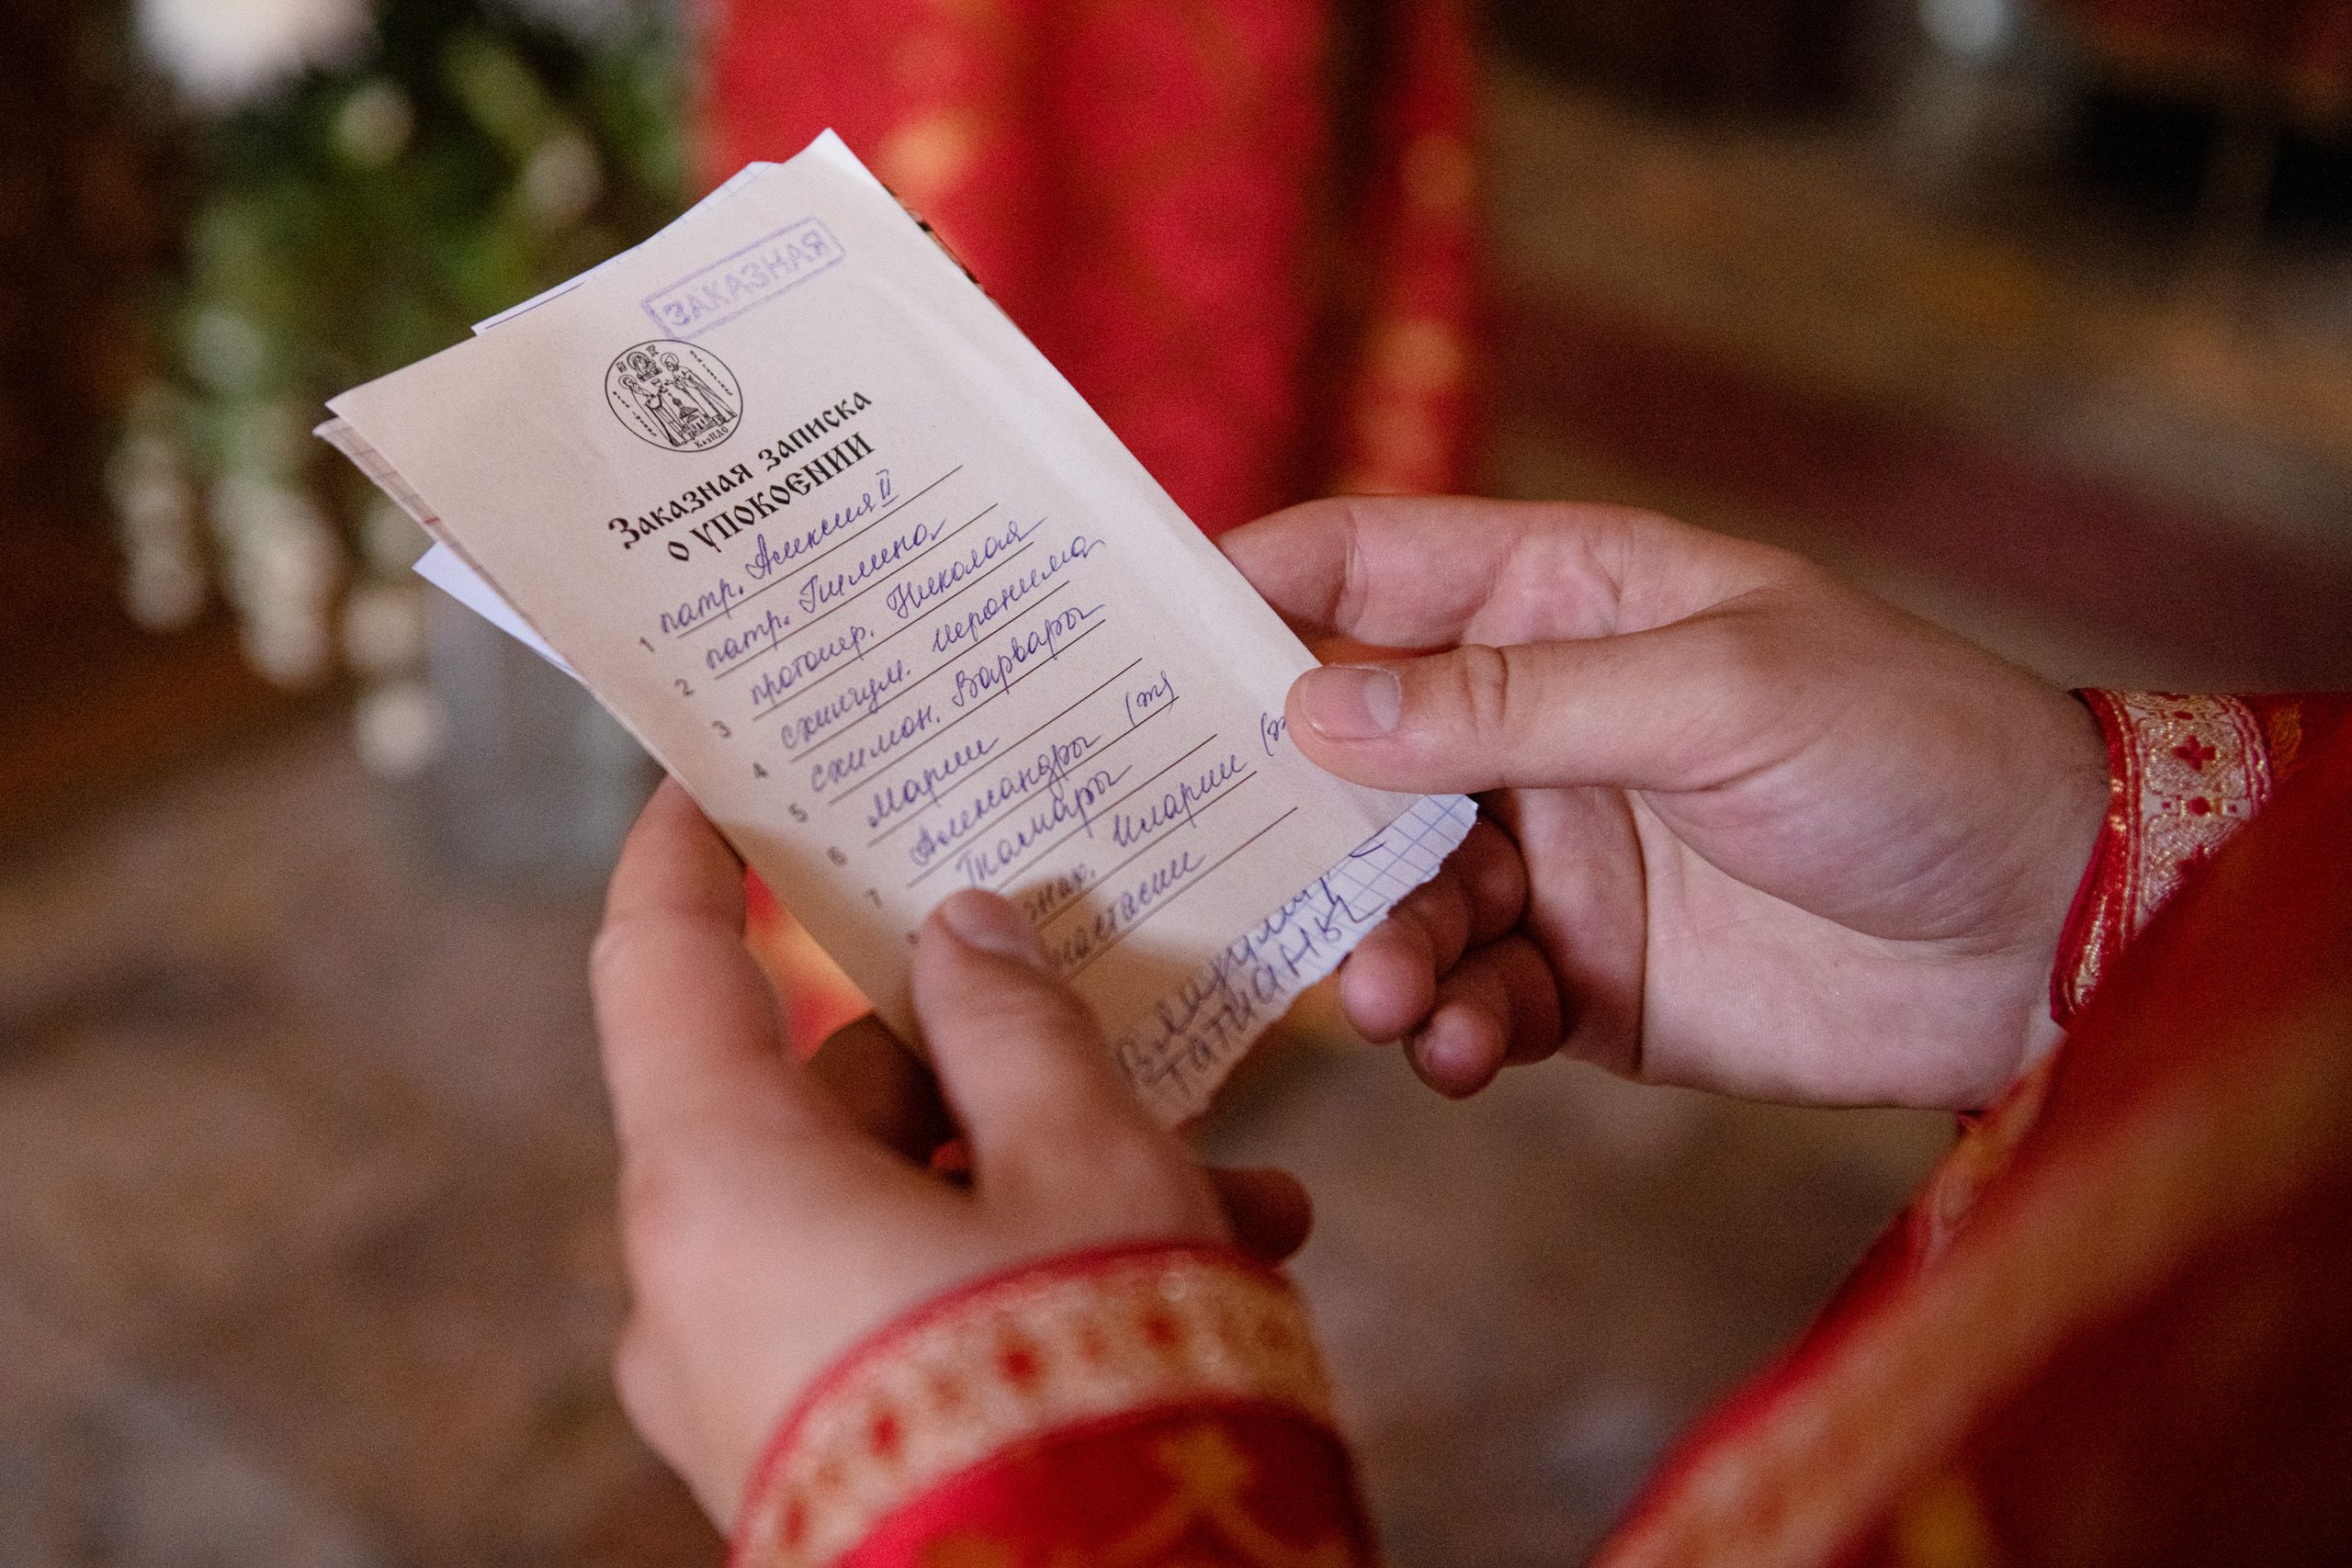 ЗАКАЗНАЯ
КазПДС
Заказная записка
о упокоении
1 патр. Алексия II
2 патр. Пимена
3 протоиер. Николая
4 схиигум. Иеронима
5 схимон. Варвары
6 Марии
7 Александры (

Тамары
Иларии
Владимир
Татианы